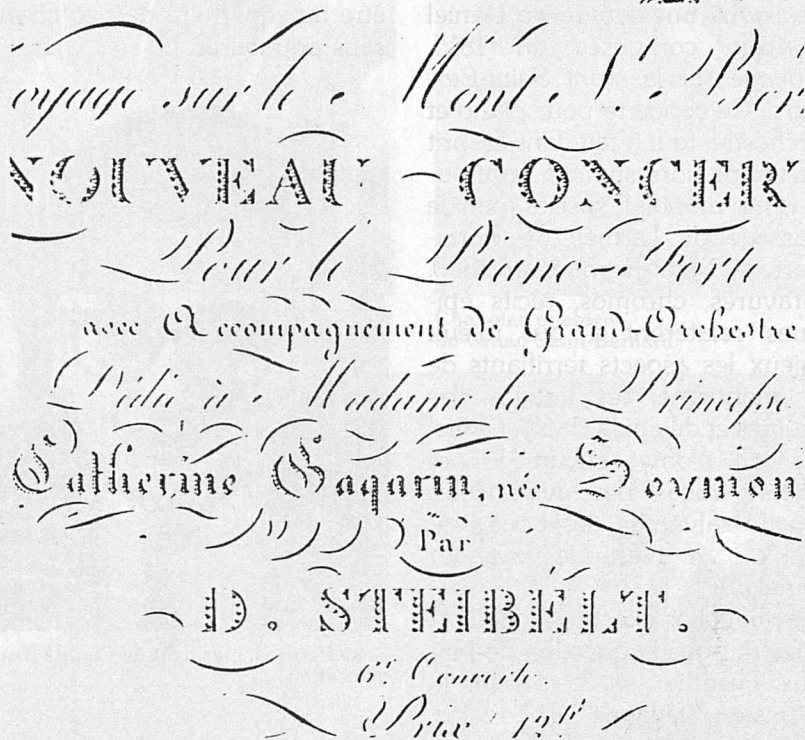 oyage sur le Mont St. Ber
NOUVEAU CONCER
Pour le Piano-Forte
avec Accompagnement de Grand-Orchestre
Dédié à Madame la Princesse
Catherine Gagarin, née Soymon
Par
D. STEIBELT.
6e. Concerto
Prix 12tt